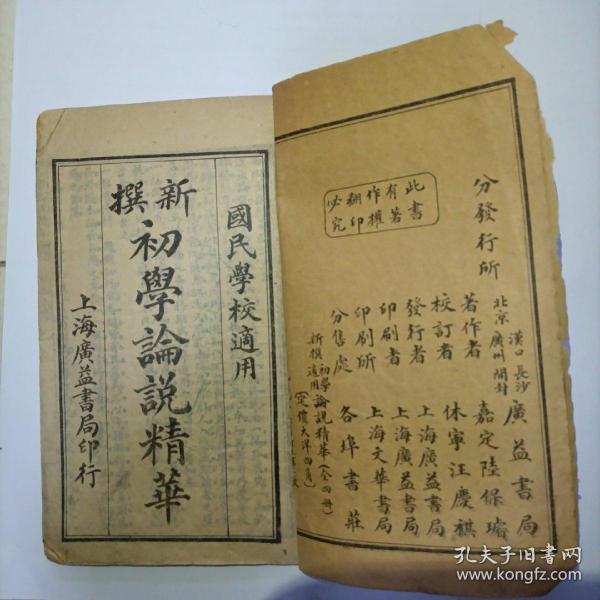 國民學校適用
新撰
初學論說精華
上海廣益書局印行
此書
有著
作權
翻印
必究
分發行所
漢口 長沙
北京 廣州 開封
廣益書局
著作者 嘉定陸保璿
校訂者 休寧汪慶祺
發行者 上海廣益書局
印刷者 上海廣益書局
印刷所 上海文華書局
分售處 各埠書莊
新撰適用 初學論說精華(全四冊)
(定價大洋四角)
孔夫子旧书网
www.kongfz.com